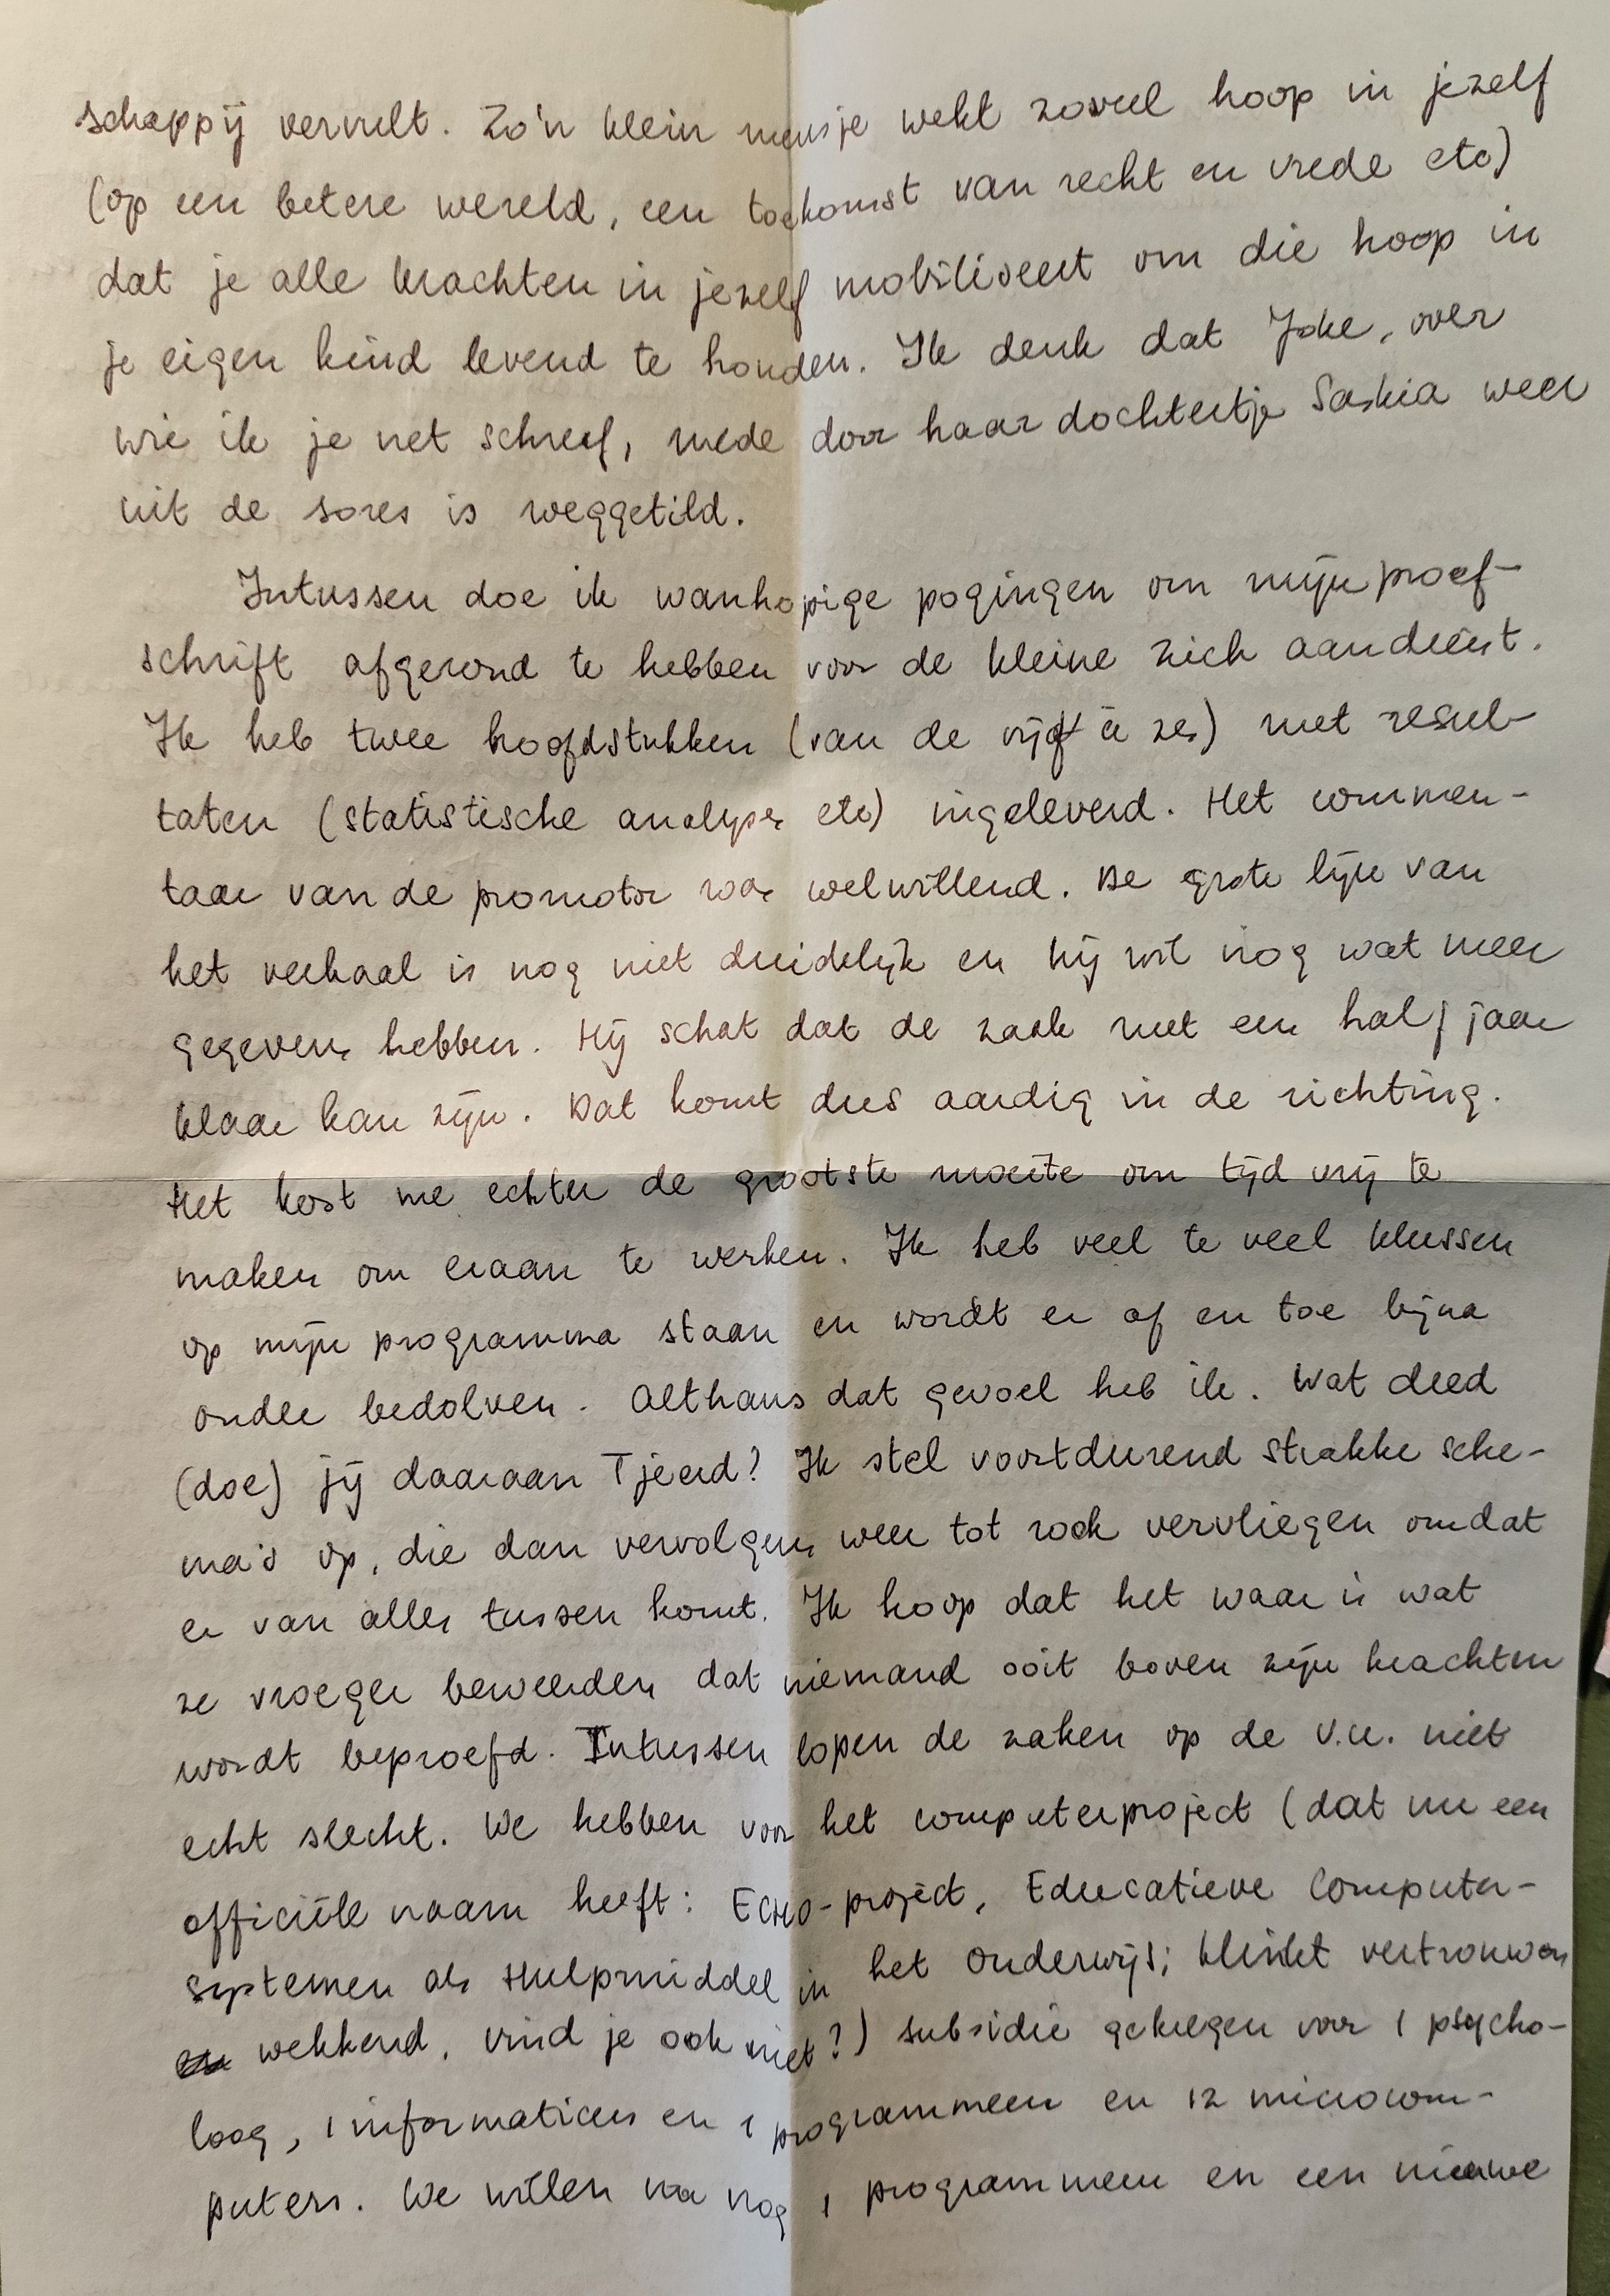 schappij vervult. Zo'n klein mensje wekt zoveel hoop in jezelf
(op een betere wereld, een toekomst van recht en vrede etc)
dat je alle krachten in jezelf mobiliseert om die hoop in
je eigen kind levend te houden. Ik denk dat Joke, over
wie ik je net schreef, mede door haar dochtertje Saskia weer
uit de sores is weggetild.
Intussen doe ik wanhopige pogingen om mijn proef-
schrift afgerond te hebben voor de kleine zich aandient.
Ik heb twee hoofdstukken (van de vijf à zes) met resul-
taten (statistische analyses etc) ingeleverd. Het commen-
taar van de promotor was welwillend. De grote lijn van
het verhaal is nog niet duidelijk en hij wil nog wat meer
gegevens hebben. Hij schat dat de zaak met een half jaar
klaar kan zijn. Dat komt dus aardig in de richting.
Het kost me echter de grootste moeite om tijd vrij te
maken om eraan te werken. Ik heb veel te veel klussen
op mijn programma staan en wordt er af en toe bijna
onder bedolven. Althans dat gevoel heb ik. Wat deed
(doe) jij daaraan Tjeerd? Ik stel voortdurend strakke sche-
ma's op, die dan vervolgens weer tot rook vervliegen omdat
er van alles tussen komt. Ik hoop dat het waar is wat
ze vroeger beweerden dat niemand ooit boven zijn krachten
wordt beproefd. Intussen lopen de zaken op de V.U. niet
echt slecht. We hebben voor het computerproject (dat nu een
officiële naam heeft: ECHO-project, Educatieve Computer-
systemen als Hulpmiddel in het Onderwijs; klinkt vertrouwen
wekkend, vind je ook niet?) subsidie gekregen voor 1 psycho-
loog, 1 informaticus en 1 programmeur en 12 microcom-
puters. We willen nog 1 programmeur en een nieuwe